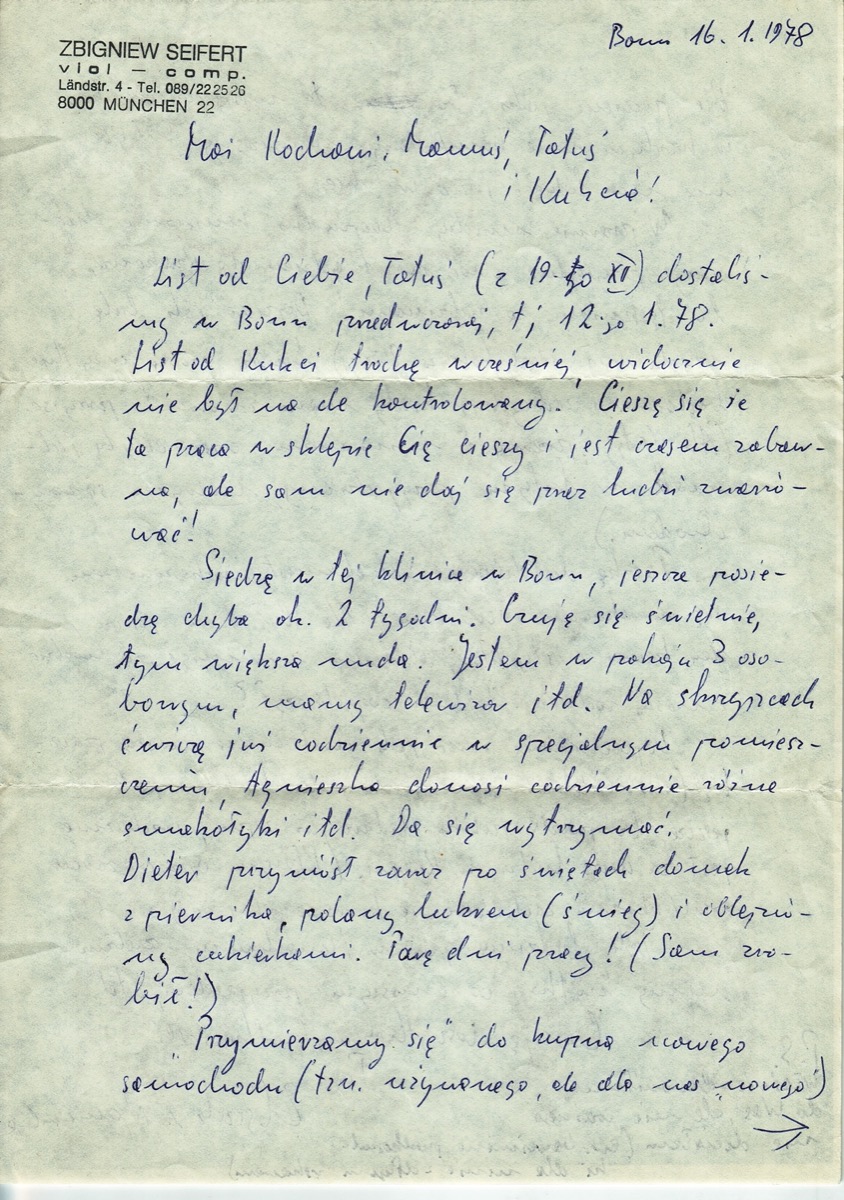 ZBIGNIEW SEIFERT
viol – comp.
Ländstr. 4 - Tel. 089/22 25 26
8000 MÜNCHEN 22
Bonn 16. 1. 1978
Moi Kochani, Mamuś, Tatuś
i Kukcia!
List od Ciebie, Tatuś (z 19-go XII) dostaliś-
my w Bonn przedwczoraj, tj 12-go 1. 78.
List od Kukci trochę wcześniej, widocznie
nie był na cle kontrolowany. Cieszę się że
ta praca w sklepie Cię cieszy i jest czasem zabaw-
na, ale sam nie daj się przez ludzi zwario-
wać!
Siedzę w tej klinice w Bonn, jeszcze posie-
dzę chyba ok. 2 tygodni. Czuję się świetnie,
tym większa nuda. Jestem w pokoju 3 oso-
bowym, mamy telewizor itd. Na skrzypcach
ćwiczę już codziennie w specjalnym pomiesz-
czeniu, Agnieszka donosi codziennie różne
smakołyki itd. Da się wytrzymać.
Dieter przyniósł zaraz po świętach domek
z piernika, polany lukrem (śnieg) i oblepio-
ny cukierkami. Parę dni pracy! (Sam zro-
bił!)
"Przymierzamy się" do kupna nowego
samochodu (tzn. używanego, ale dla nas "nowego")